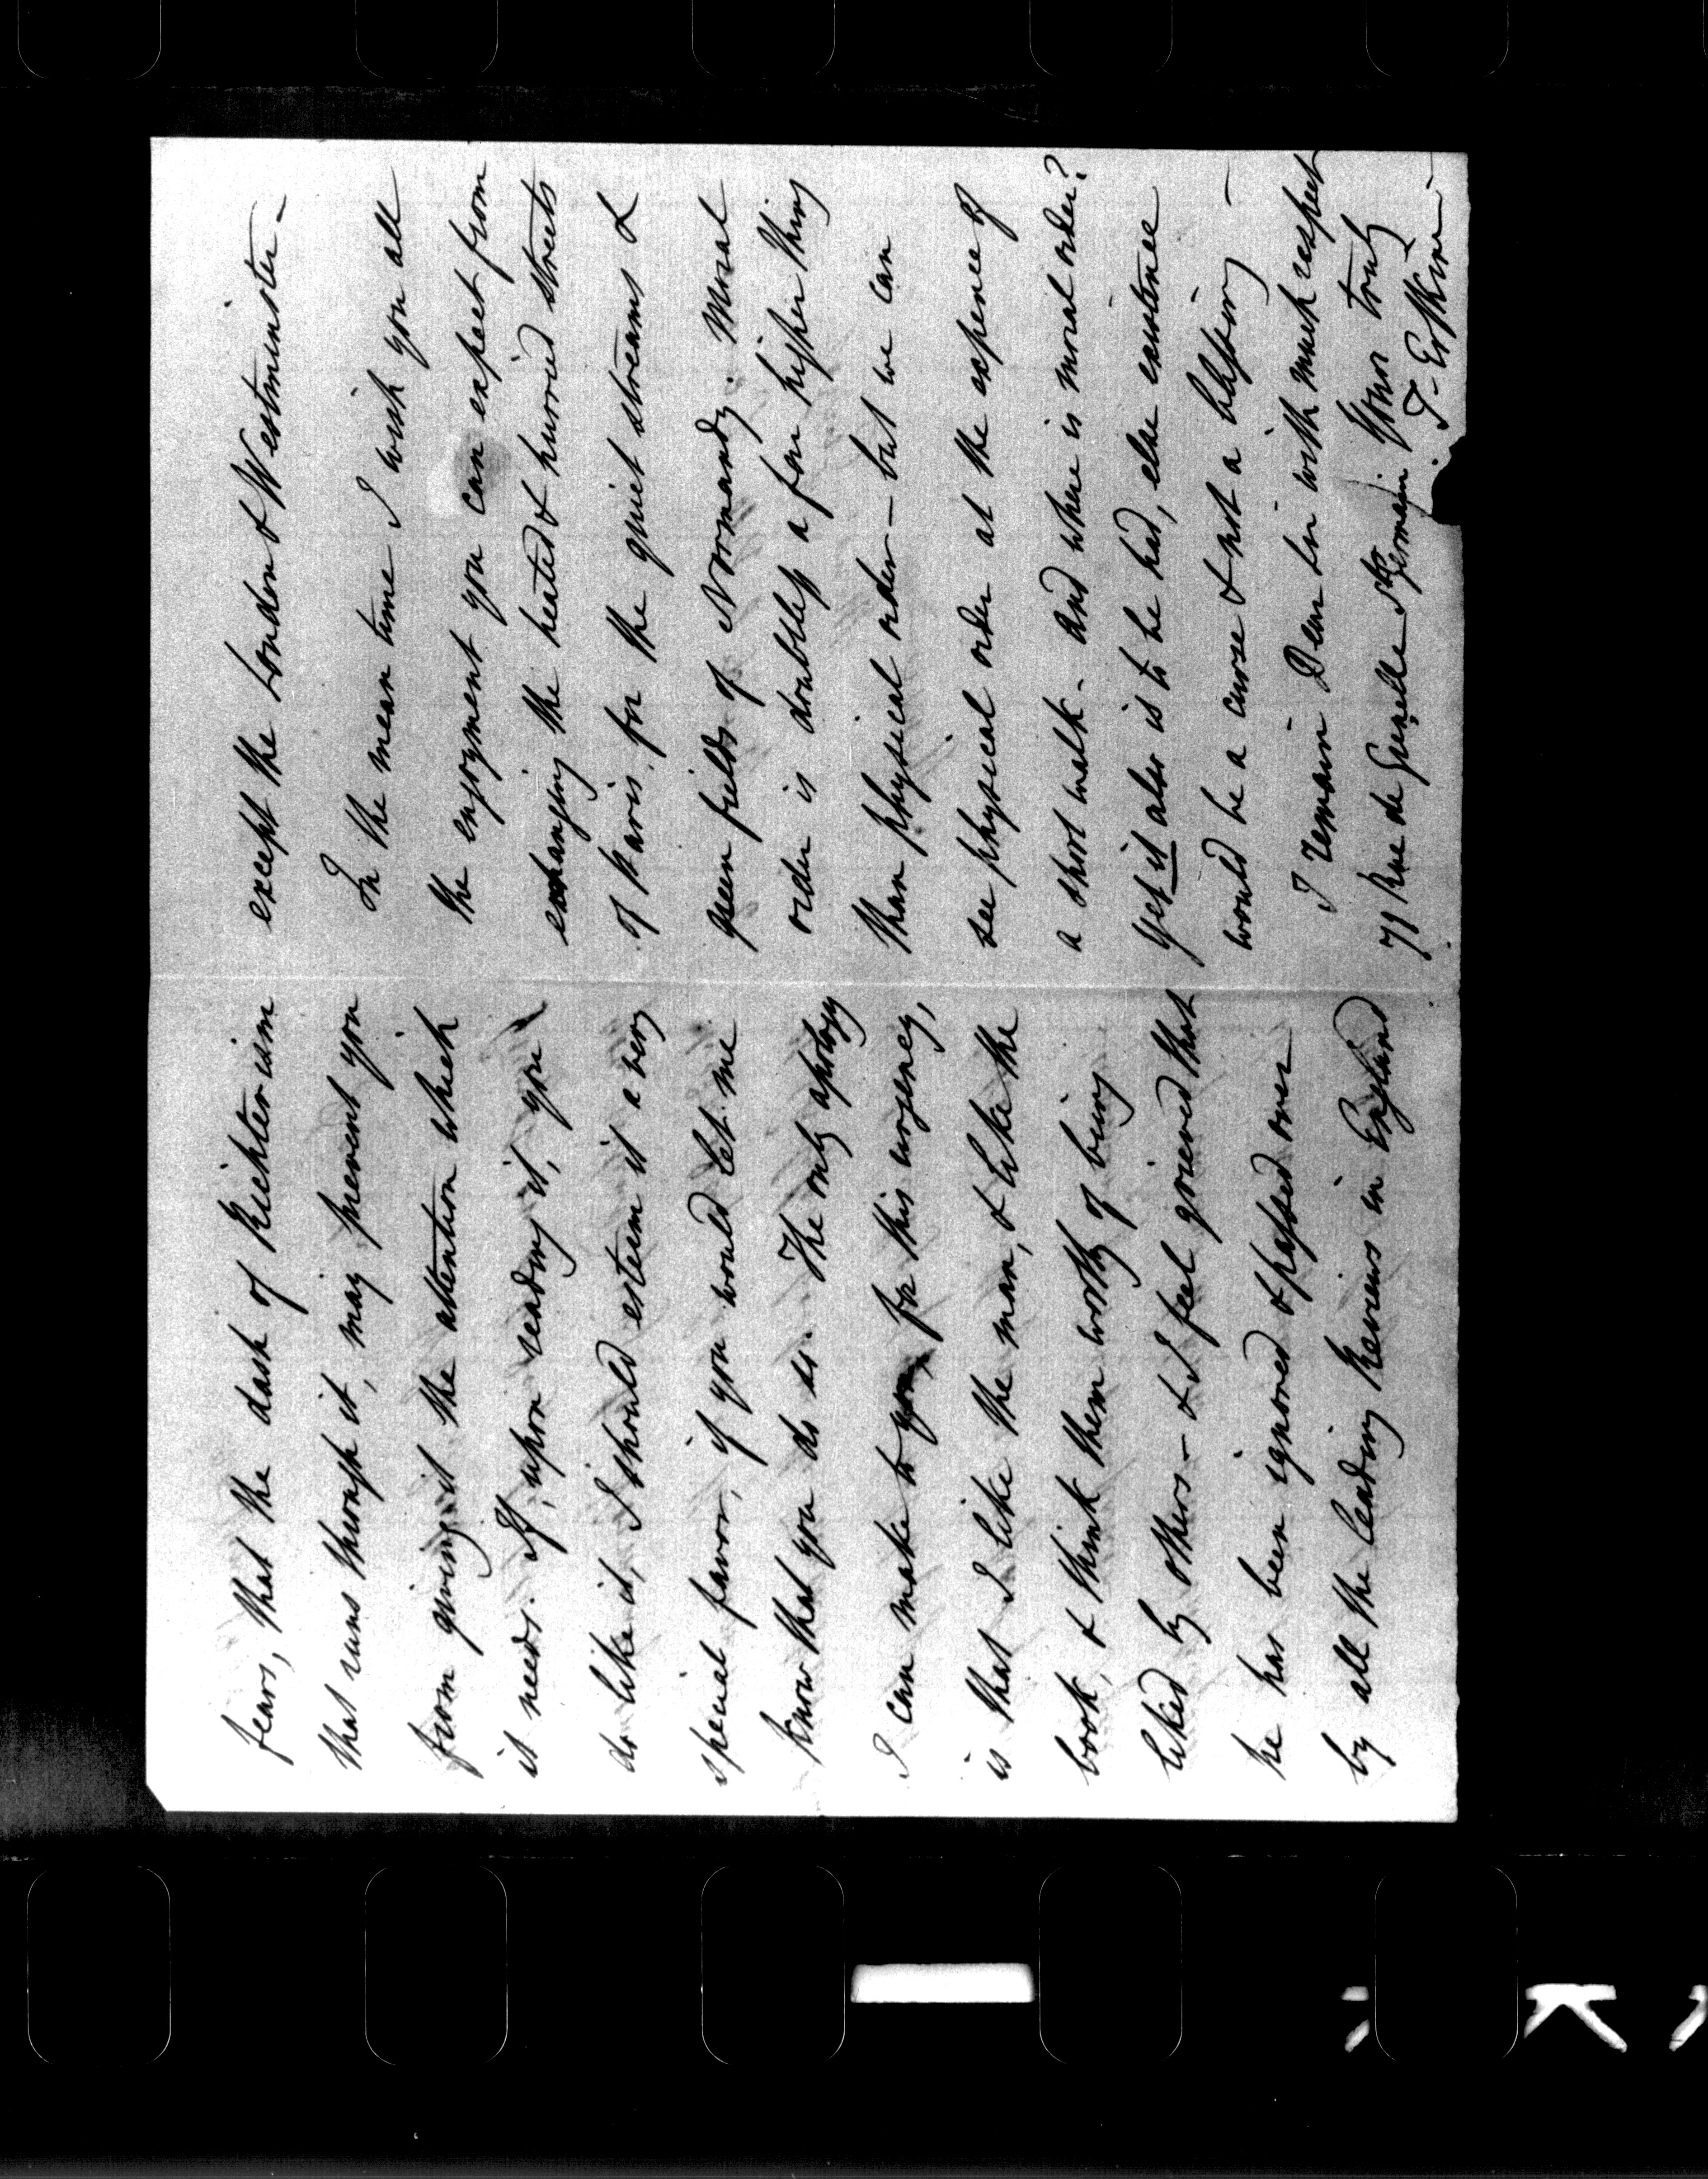 fears, that the dash of Richterism
that runs through it, may prevent you
from giving it the attention which
it needs. If, upon reading it, you
do like it, I should esteem it a very
special favor, if you would let me
know that you do so. The only apology
I can make to you for this urgency,
is that I like the man, & like the
book, & think them worthy of being
liked by others – & I feel grieved that
he has been ignored & passed over
by all the leading Reviews in England
except the London & Westminster –
In the mean time I wish you all
the enjoyment you can expect from
exchanging the heated & hurried streets
of Paris for the quiet streams &
green fields of Normandy. Moral
order is doubtless a far higher thing
than physical order – but we can
see physical order at the expence of
a short walk – and where is moral order?
Yet it also is to be had, else existence
would be a curse & not a blessing –
I remain Dear Sir with much respect
Yours truly
73 Rue de Grenelle St Germain. T. Erskine –